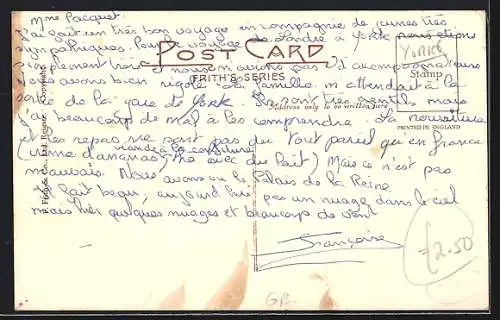 Mme Pacquet
J'ai fait un très bon voyage en compagnie de jeunes très
sympathiques. Pour le voyage de Londres à York nous étions
simplement trois, nous n'avions pas d'accompagnateurs
nous avons bien rigolé. La famille m'attendait à la
sortie de la gare de York. Ils sont très gentils mais
j'ai beaucoup de mal à les comprendre. La nourriture
et les repas ne sont pas du tout pareil qu'en France
(viande à la confiture)
(crème d'ananas, thé avec du lait) Mais ce n'est pas
mauvais. Nous avons vu le Palais de la Reine
Il fait beau, aujourd'hui pas un nuage dans le ciel
mais hier quelques nuages et beaucoup de vent
Françoise
POST CARD
FRITH'S SERIES
YORK
Stamp
Address only to be written here
PRINTED IN ENGLAND
F. Frith & Co., Ltd. Reigate. Copyright.
£2.50
GB.